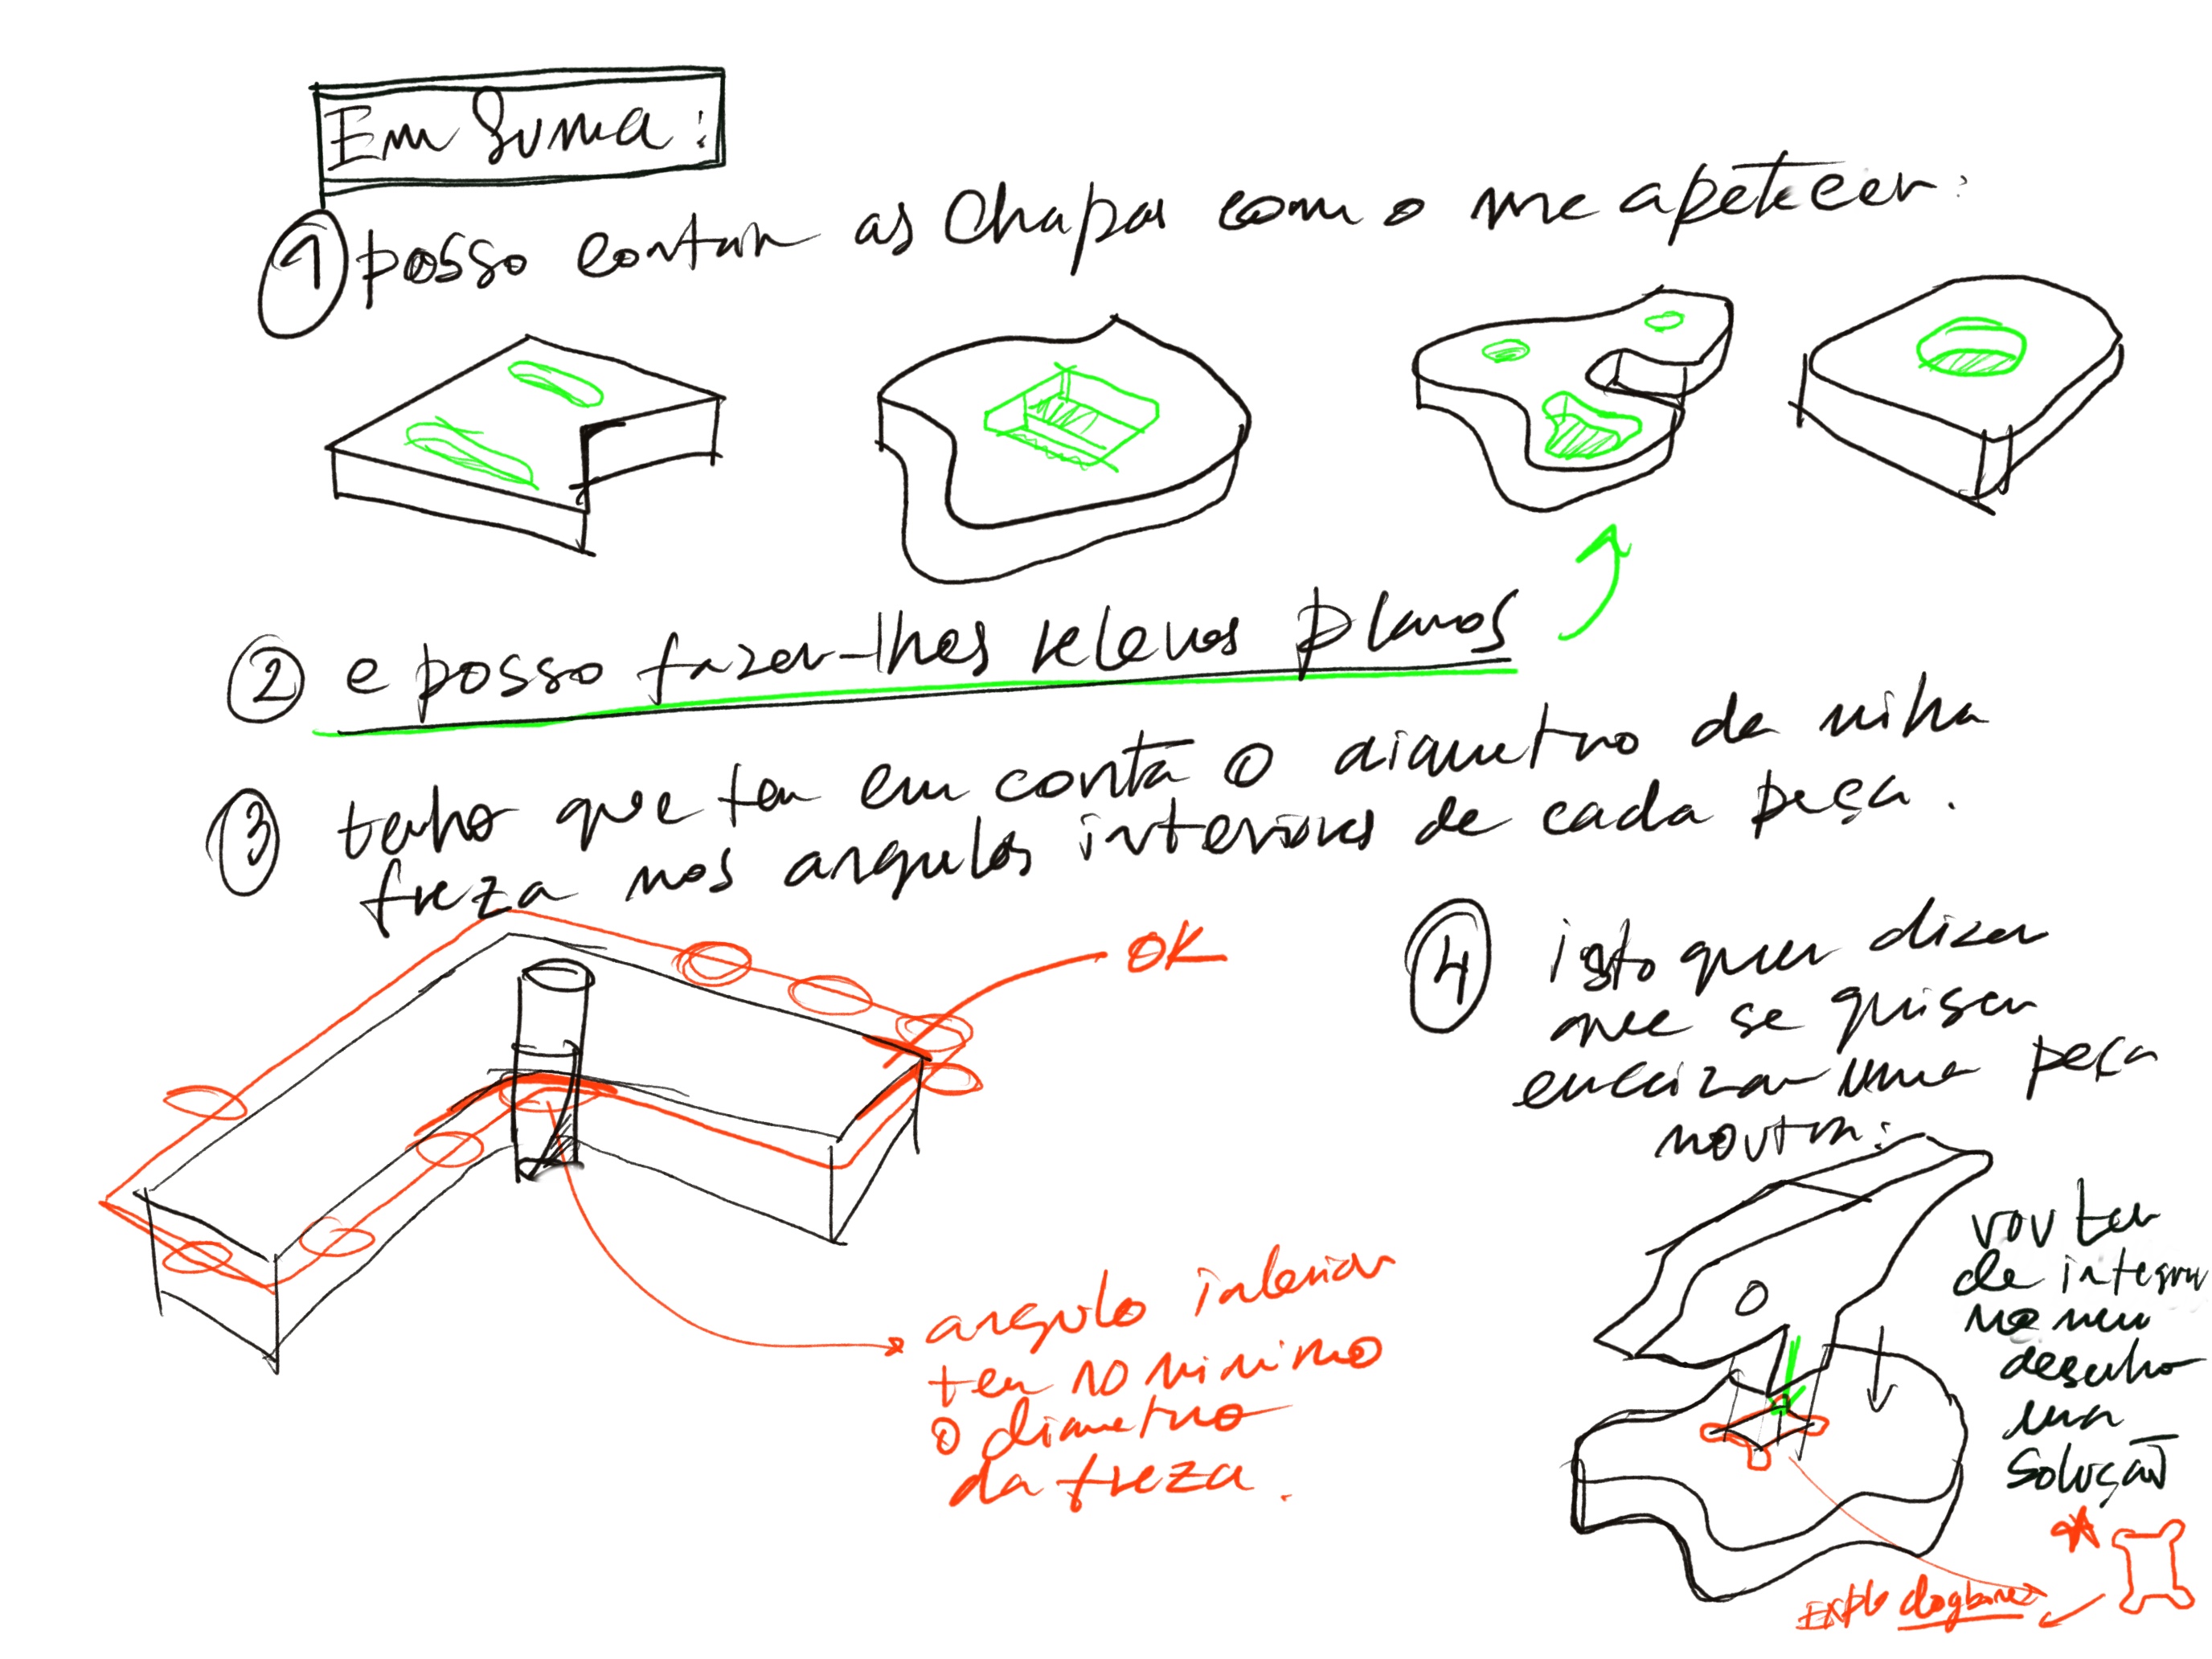 Em Suma:
1 posso cortar as chapas como me apetecer:
2 e posso fazer-lhes relevos planos
3 tenho que ter em conta o diametro da minha
freza nos angulos interiores de cada peça.
OK
angulo interior
ter no minimo
o diametro
da freza.
4 isto quer dizer
que se quiser
encaixar uma peça
noutra:
vou ter
de integrar
no meu
desenho
uma
solução
Explo dogbones